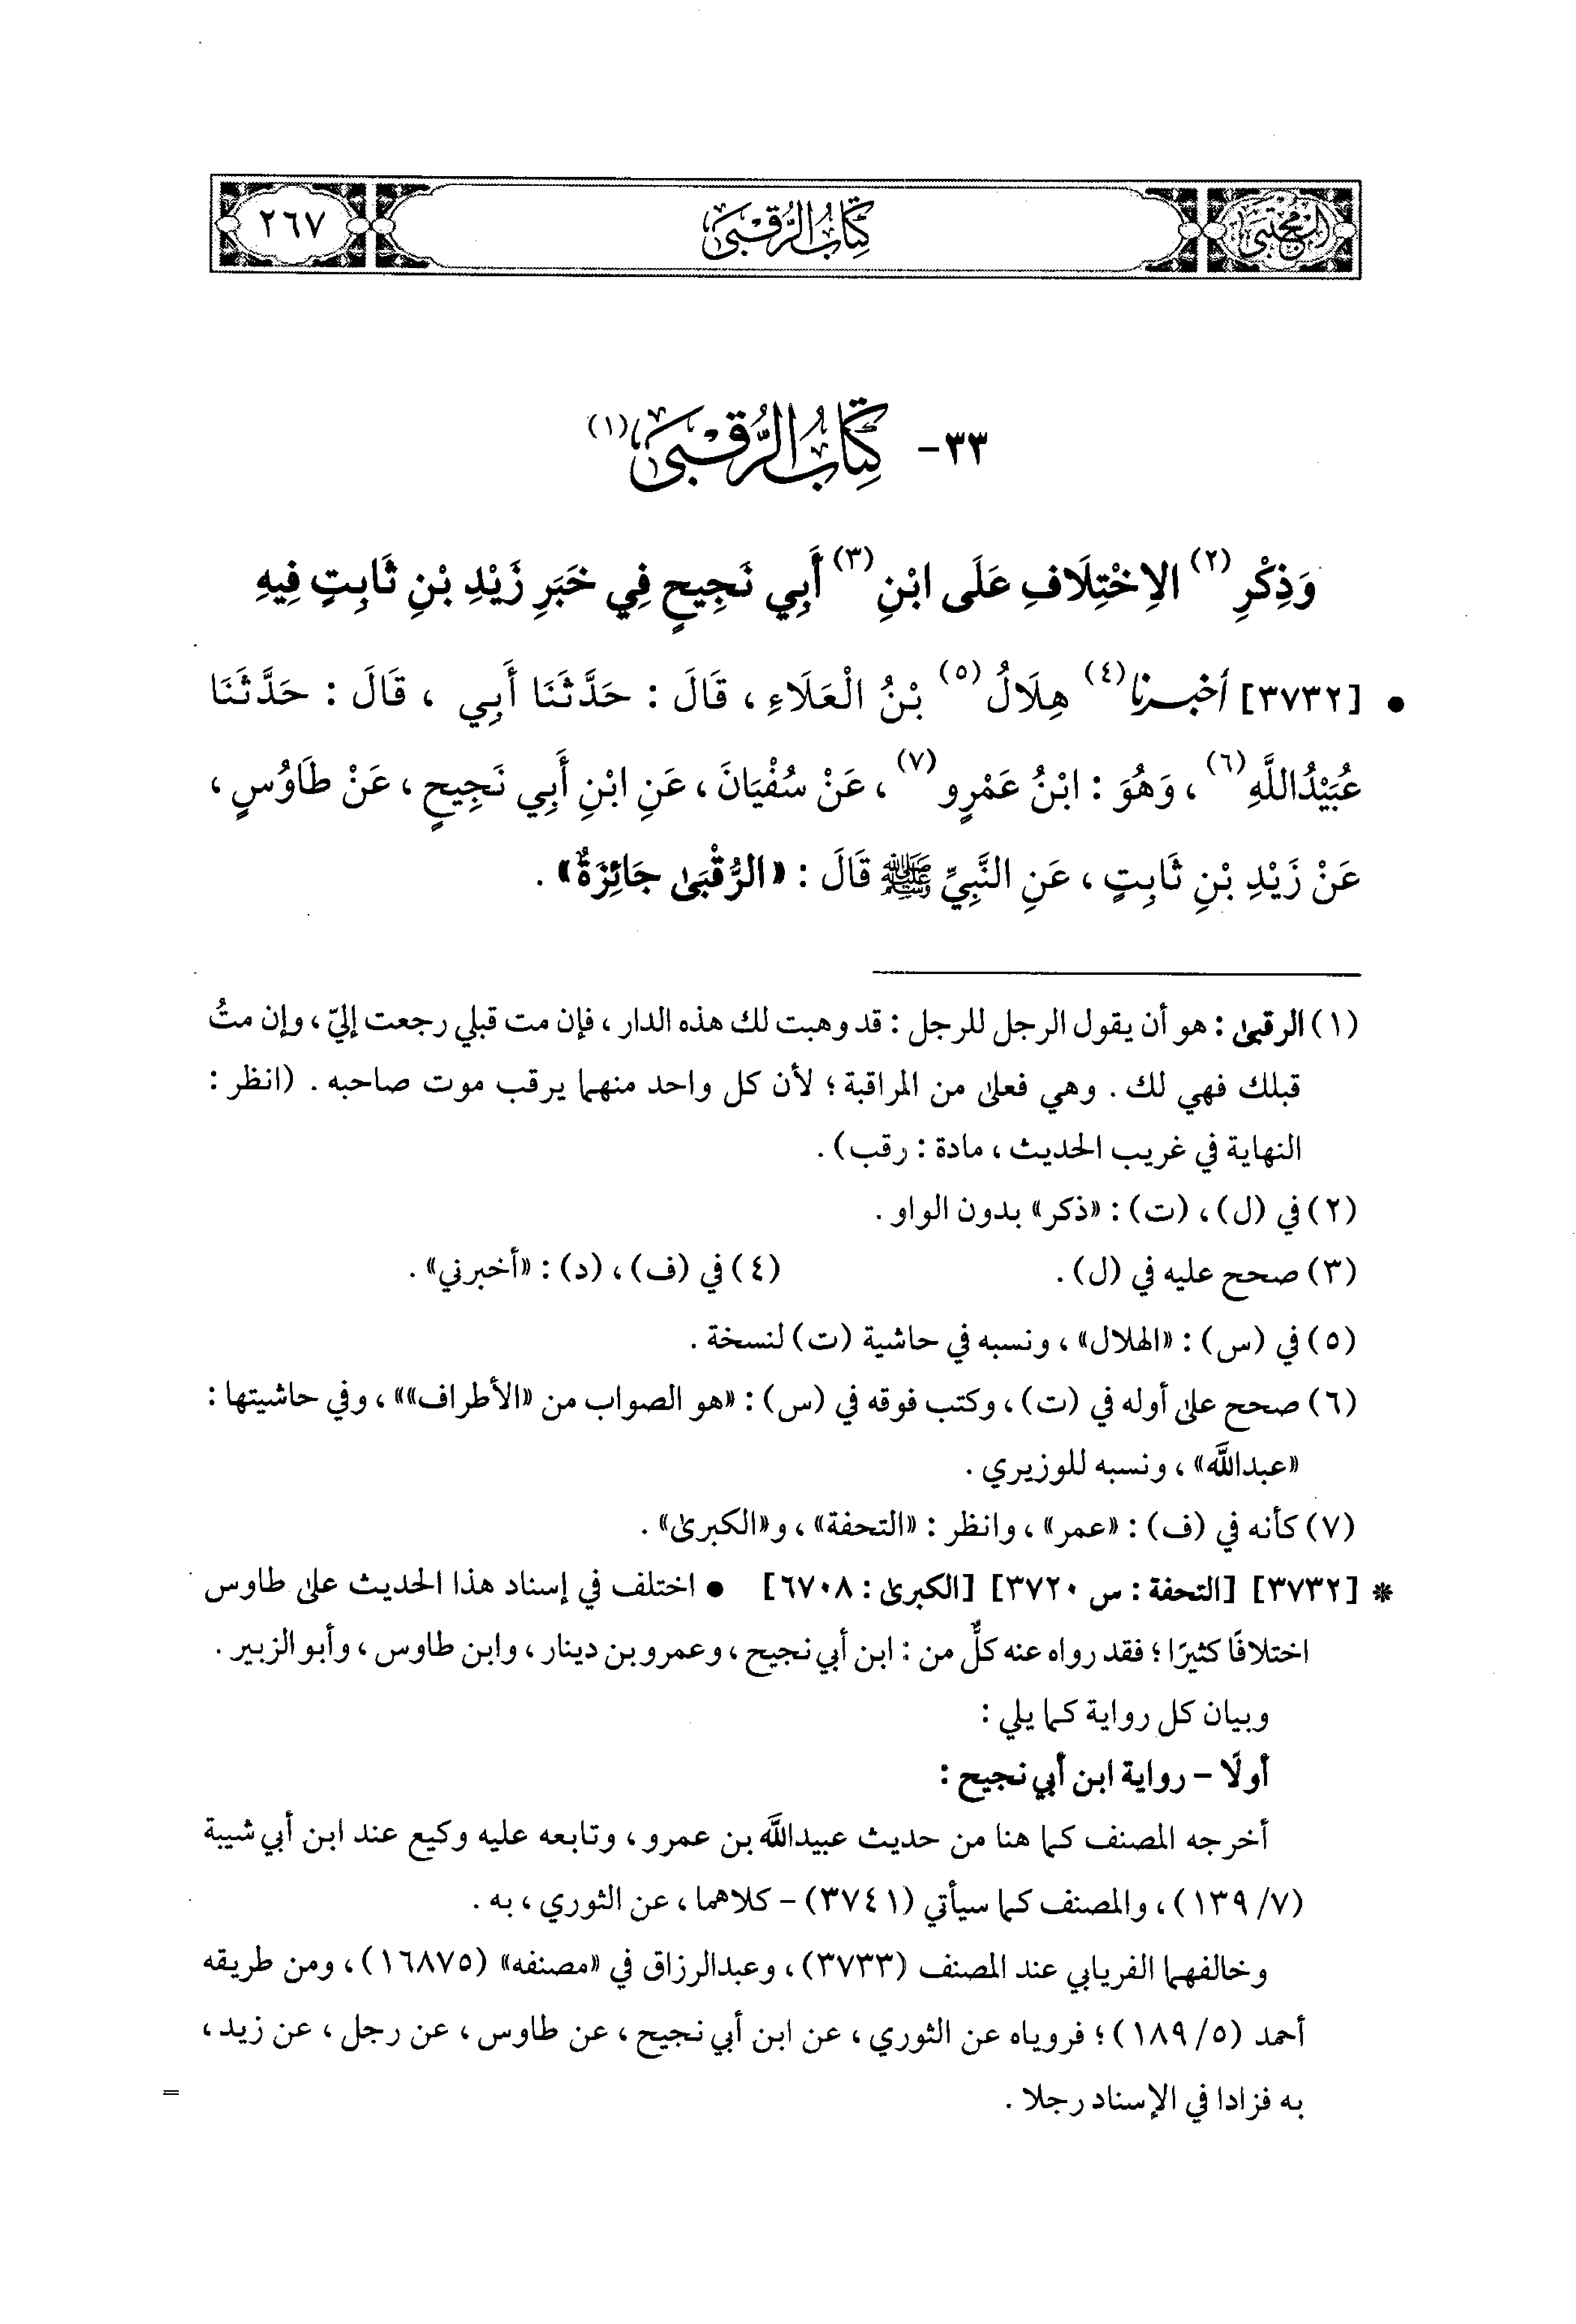 المجتبى
كتاب الرُّقْبَى
٢٦٧
٣٣- كِتَابُ الرُّقْبَىٰ(١)
وَذِكْرِ(٢) الِاخْتِلَافِ عَلَى ابْنِ(٣) أَبِي نَجِيحٍ فِي خَبَرِ زَيْدِ بْنِ ثَابِتٍ فِيهِ
• [٣٧٣٢] أخبرنا(٤) هِلَالُ(٥) بْنُ الْعَلَاءِ، قَالَ: حَدَّثَنَا أَبِي، قَالَ: حَدَّثَنَا
عُبَيْدُاللَّهِ(٦)، وَهُوَ: ابْنُ عَمْرٍو(٧)، عَنْ سُفْيَانَ، عَنِ ابْنِ أَبِي نَجِيحٍ، عَنْ طَاوُسٍ،
عَنْ زَيْدِ بْنِ ثَابِتٍ، عَنِ النَّبِيِّ ﷺ قَالَ: «الرُّقْبَىٰ جَائِزَةٌ».
(١) الرقبىٰ: هو أن يقول الرجل للرجل: قد وهبت لك هذه الدار، فإن مت قبلي رجعت إليّ، وإن متُ
قبلك فهي لك. وهي فعلىٰ من المراقبة؛ لأن كل واحد منهما يرقب موت صاحبه. (انظر:
النهاية في غريب الحديث، مادة: رقب).
(٢) في (ل)، (ت): «ذكر» بدون الواو.
(٣) صحح عليه في (ل). (٤) في (ف)، (د): «أخبرني».
(٥) في (س): «الهلال»، ونسبه في حاشية (ت) لنسخة.
(٦) صحح علىٰ أوله في (ت)، وكتب فوقه في (س): «هو الصواب من «الأطراف»»، وفي حاشيتها:
«عبداللَّه»، ونسبه للوزيري.
(٧) كأنه في (ف): «عمر»، وانظر: «التحفة»، و«الكبرىٰ».
* [٣٧٣٢] [التحفة: س ٣٧٢٠] [الكبرىٰ: ٦٧٠٨] • اختلف في إسناد هذا الحديث علىٰ طاوس
اختلافًا كثيرًا؛ فقد رواه عنه كلٌّ من: ابن أبي نجيح، وعمرو بن دينار، وابن طاوس، وأبو الزبير.
وبيان كل رواية كما يلي:
أولًا - رواية ابن أبي نجيح:
أخرجه المصنف كما هنا من حديث عبيداللَّه بن عمرو، وتابعه عليه وكيع عند ابن أبي شيبة
(٧/ ١٣٩)، والمصنف كما سيأتي (٣٧٤١) - كلاهما، عن الثوري، به.
وخالفهما الفريابي عند المصنف (٣٧٣٣)، وعبدالرزاق في «مصنفه» (١٦٨٧٥)، ومن طريقه
أحمد (٥/ ١٨٩)؛ فروياه عن الثوري، عن ابن أبي نجيح، عن طاوس، عن رجل، عن زيد،
به فزادا في الإسناد رجلا.
=